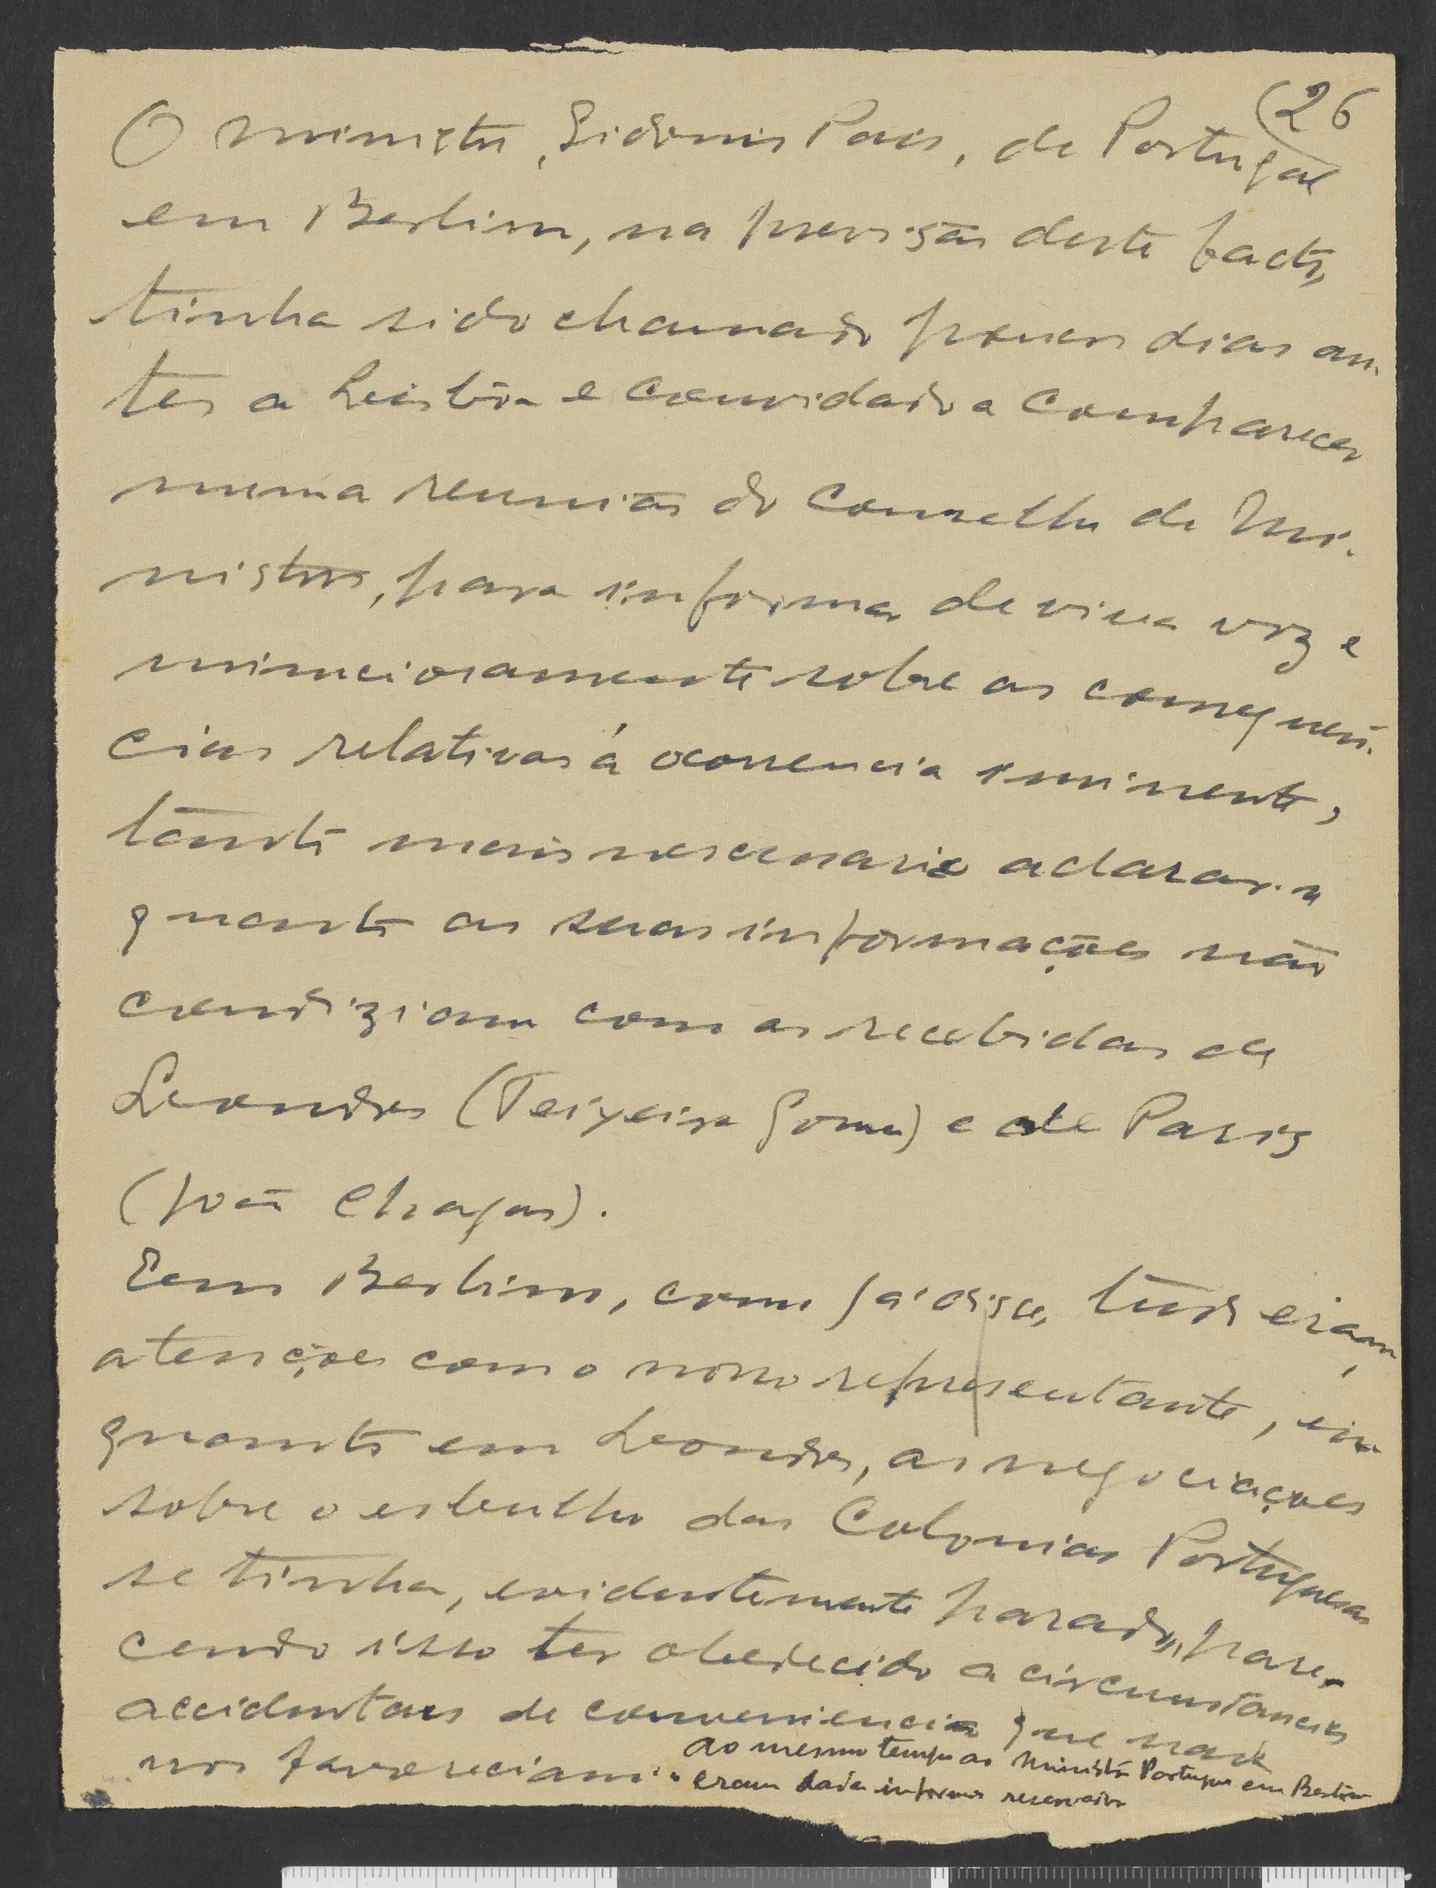 (26
O ministro, Sidonio Pais, de Portugal
em Berlim, na previsão deste facto,
tinha sido chamado poucos dias an-
tes a Lisbôa e convidado a comparecer
numa reunião do Conselho de Mi-
nistros, para informar de viva voz e
minuciosamente sobre as consequên-
cias relativas á ocorrencia iminente,
tanto mais necessario aclarar-se
quanto as suas informações não
condiziam com as recebidas de
Londres (Teixeira Gomes) e de Paris
(João Chagas).
Em Berlim, como já disse, tudo eram
atenções com o nosso representante, en-
quanto em Londres, as negociações
sobre o esbulho das Colonias Portuguesas
se tinha, evidentemente parado, pare-
cendo isso ter obedecido a circunstancias
accidentaes de conveniencia que nada
nos favoreciam.
Ao mesmo tempo ao Ministro Portuguez em Berlim
eram dados informes reservados